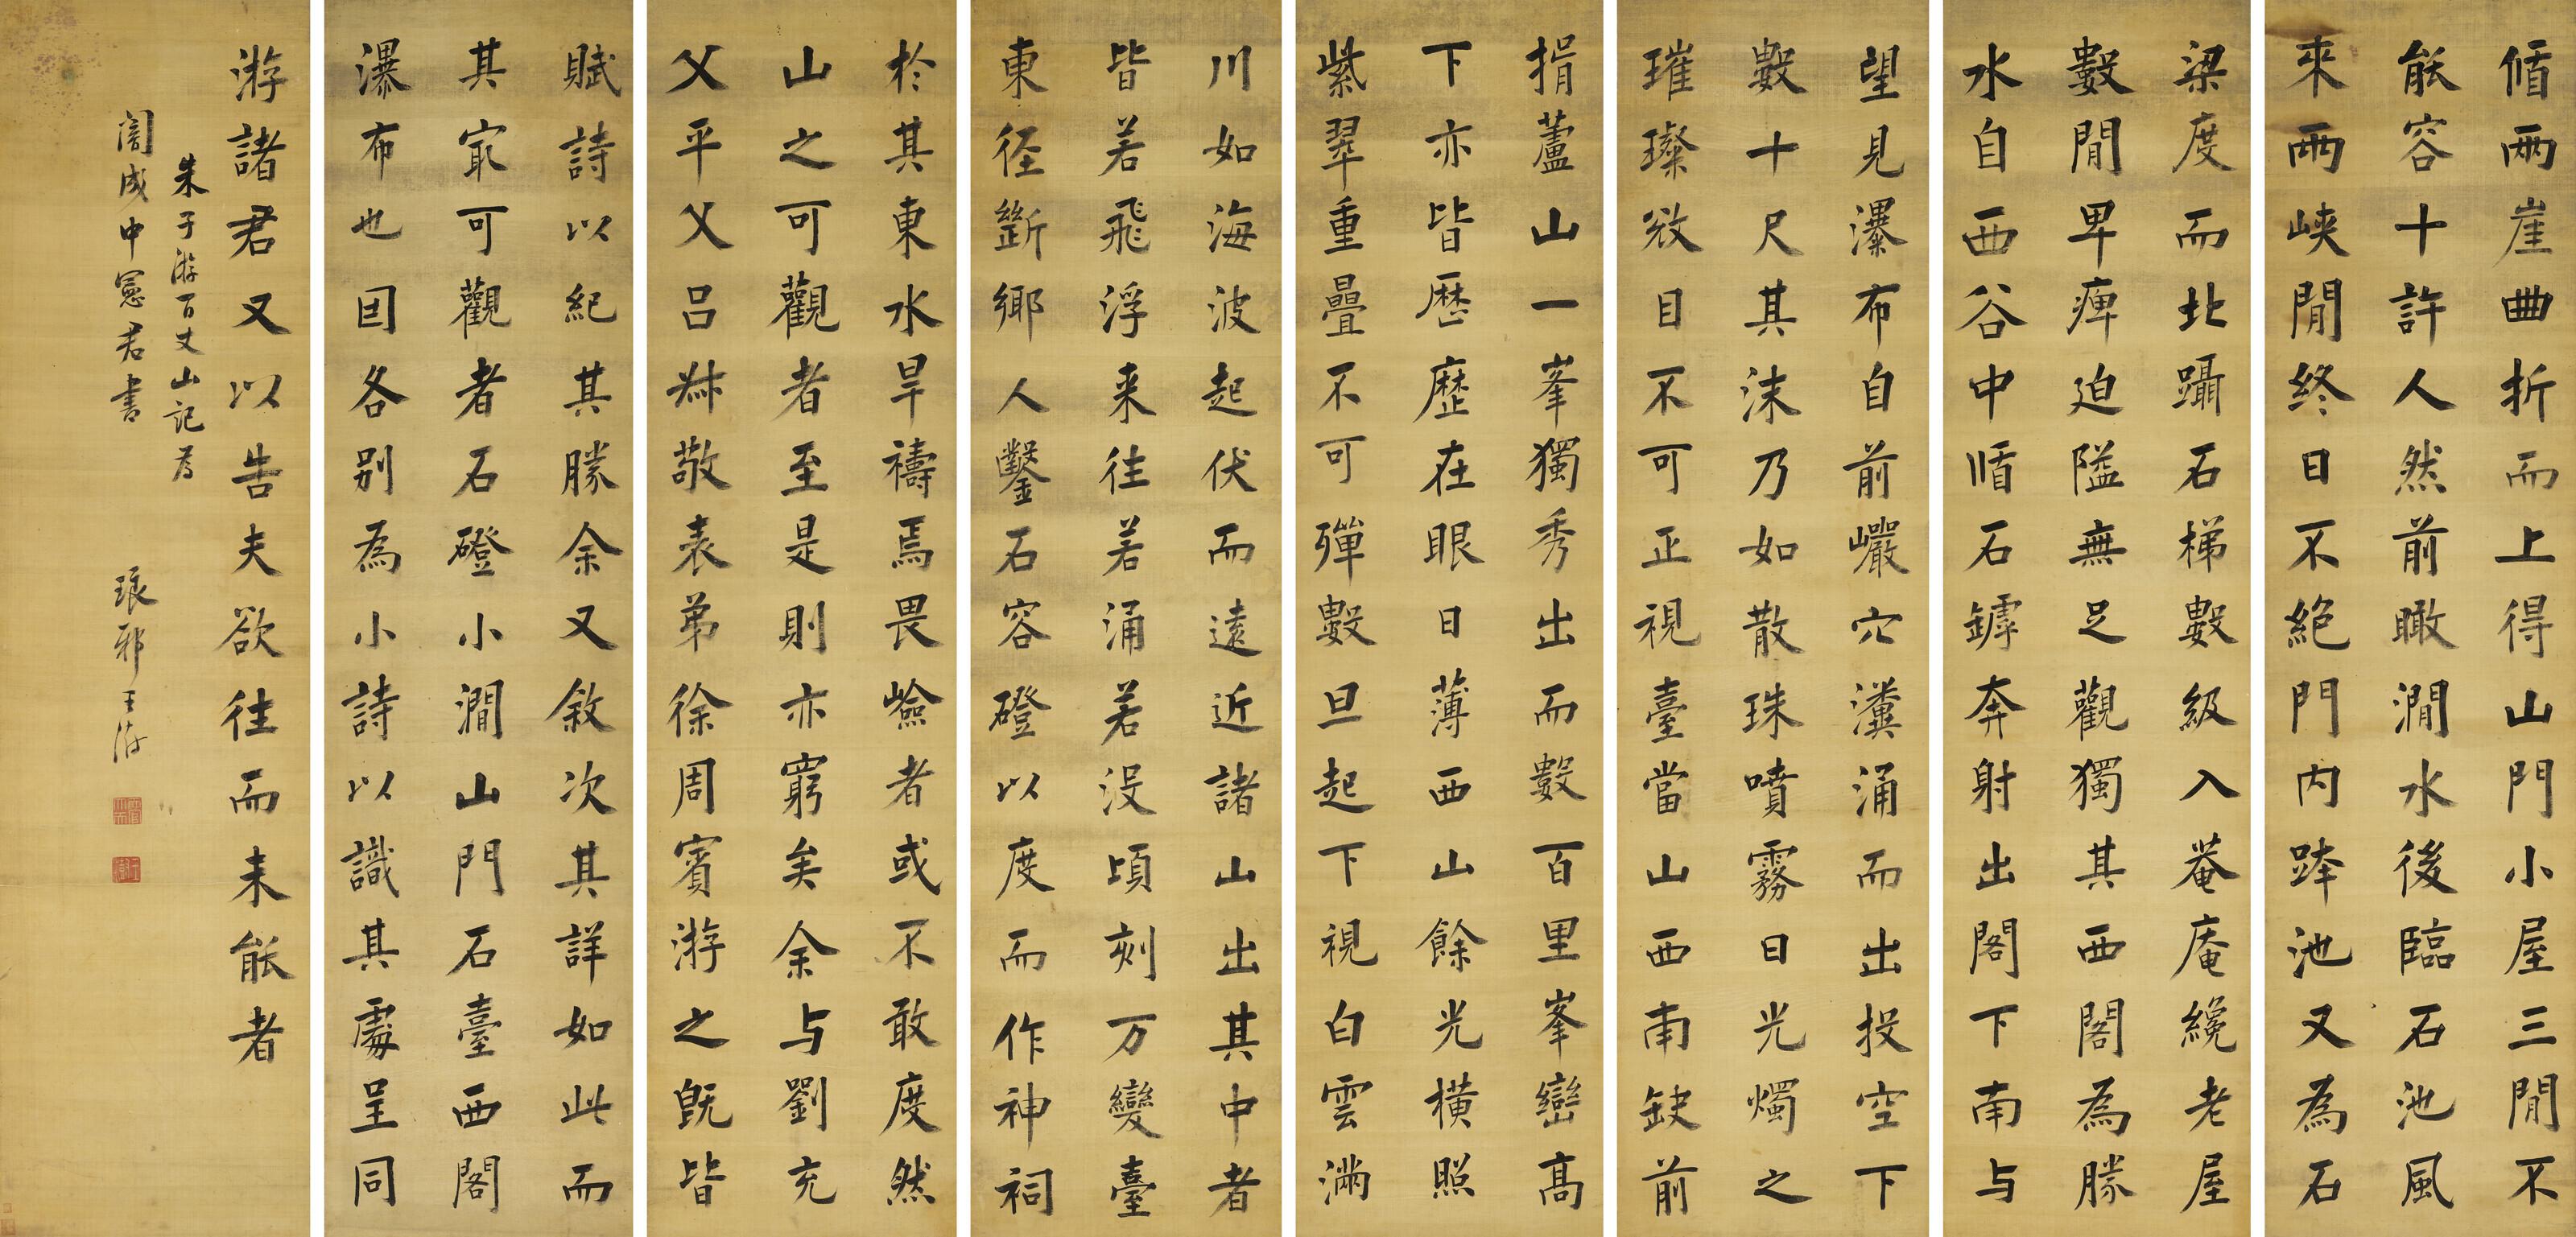 循兩崖曲折而上得山門小屋三間不
能容十許人然前瞰澗水後臨石池風
來兩峽間終日不絕門內跨池又為石
梁度而北躡石梯數級入菴庵纔老屋
數間卑痺迫隘無足觀獨其西閣為勝
水自西谷中循石罅奔射出閣下南与
望見瀑布自前巖穴瀵涌而出投空下
數十尺其沫乃如散珠噴霧日光燭之
璀璨㪚目不可正視臺當山西南缺前
揖蘆山一峯獨秀出而數百里峯巒高
下亦皆歷歷在眼日薄西山餘光橫照
紫翠重疊不可殫數旦起下視白雲滿
川如海波起伏而遠近諸山出其中者
皆若飛浮来往若涌若沒頃刻万變臺
東徑斷鄉人鑿石容磴以度而作神祠
於其東水旱禱焉畏嶮者或不敢度然
山之可觀者至是則亦窮矣余与劉充
父平父呂叔敬表弟徐周賓游之旣皆
賦詩以紀其勝余又敘次其詳如此而
其冣可觀者石磴小澗山門石臺西閣
瀑布也因各別為小詩以識其處呈同
游諸君又以告夫欲往而未能者
朱子游百丈山記為
誾成中憲君書
琅邪王澍